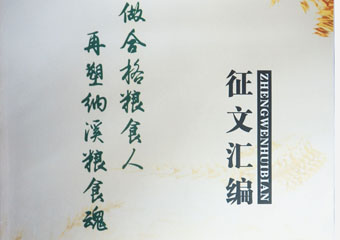 做合格粮食人
再塑纳溪粮食魂
征文汇编
ZHENGWENHUIBIAN